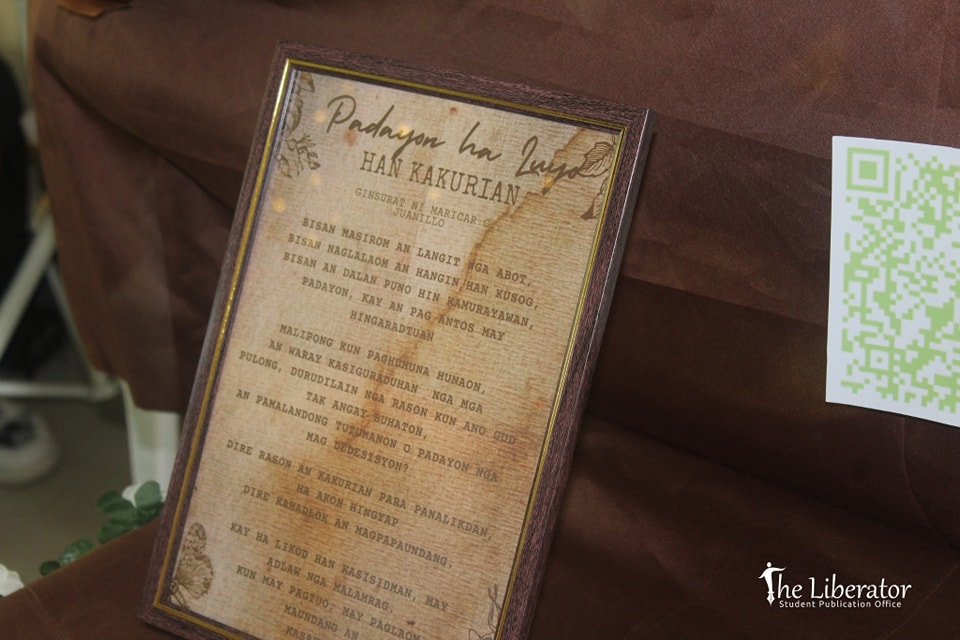 Padayon ha Luyo
HAN KAKURIAN
GINSURAT NI MARICAR C.
JUANILLO
BISAN MASIROM AN LANGIT NGA ABOT,
BISAN NAGLALAOM AN HANGIN HAN KUSOG,
BISAN AN DALAN PUNO HIN KAMURAYAWAN,
PADAYON, KAY AN PAG ANTOS MAY
HINGARADTUAN
MALIPONG KUN PAGHUHUNA HUNAON,
AN WARAY KASIGURADUHAN NGA MGA
PULONG, DURUDILAIN NGA RASON KUN ANO GUD
TAK ANGAY BUHATON,
AN PAMALANDONG TUTUMANON O PADAYON NGA
MAG DEDESISYON?
DIRE RASON AN KAKURIAN PARA PANALIKDAN,
HA AKON HINGYAP
DIRE KAHADLOK AN MAGPAPAUNDANG,
KAY HA LIKOD HAN KASISIDMAN, MAY
ADLAW NGA MALAMRAG.
KUN MAY PAGTUO, MAY PAGLAOM,
MAUNDANG AN
The Liberator
Student Publication Office